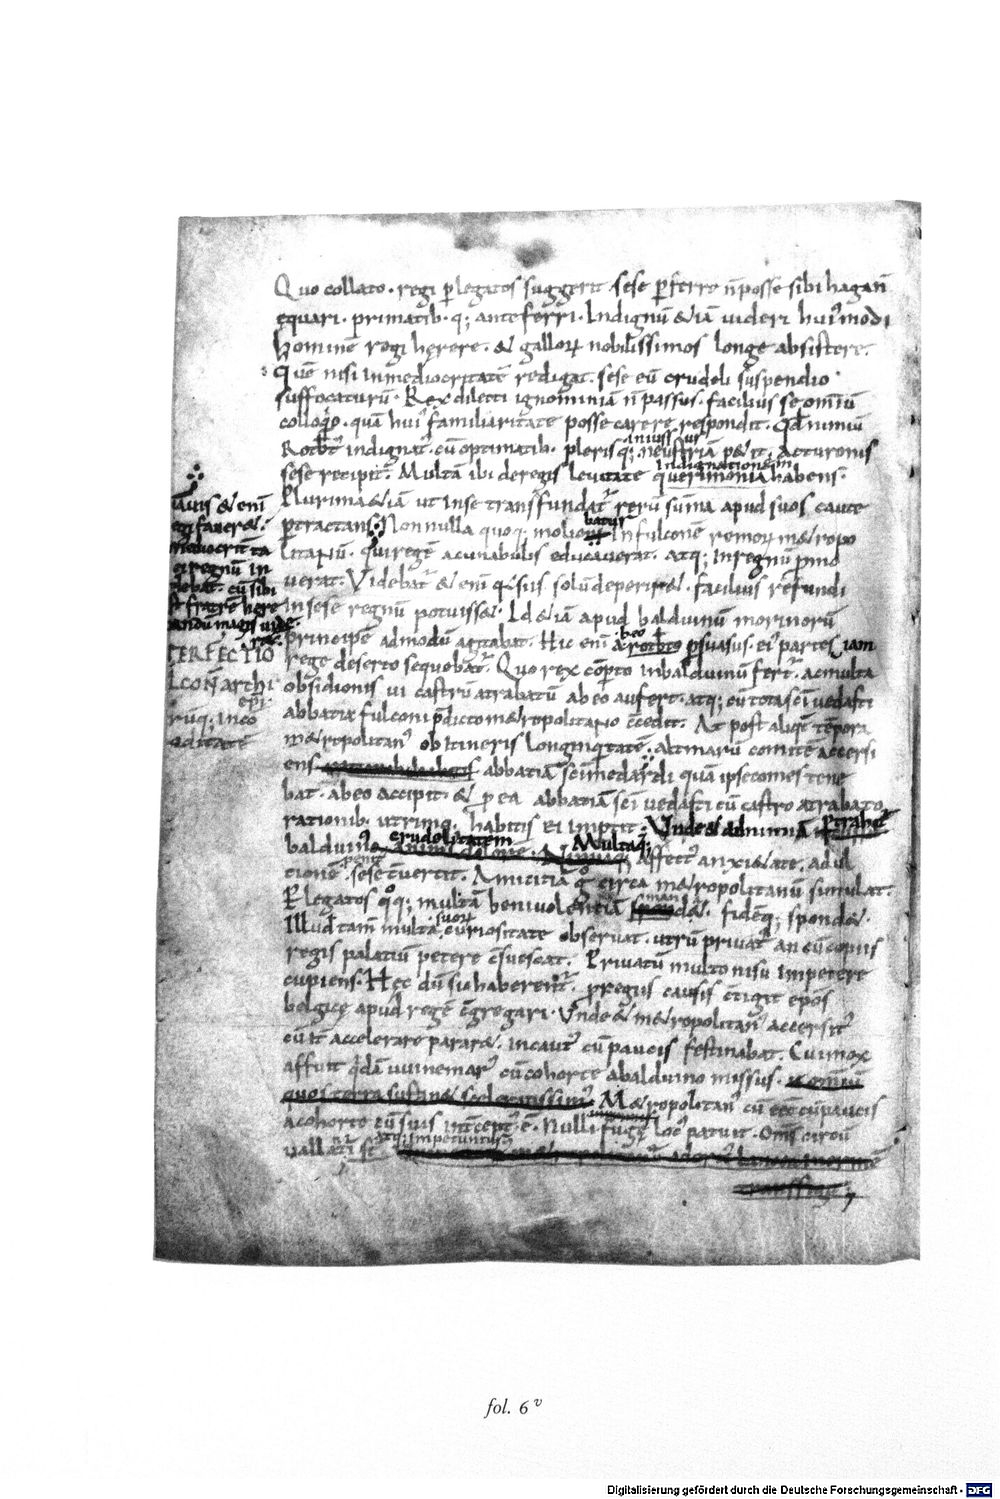 Quo collato · regi p legatos suggerit sese pferre n posse sibi hagañ
ęquari · primatib· q; anteferri · Indignū & iā uideri hui'modi
hominē regi hęrere · & gallorꝝ nobilissimos longe absistere.
Quē nisi in mediocritatē redigat · sese eū crudeli suspendio
suffocaturū · Rex dilecti ignominiā n passus · facilius se omniū
colloqo · quā hui' familiaritate posse carere respondit · Qd nimiū
Rotbt' indignat' cū optimatib· pleris q;
iniussus
neustriā p&it · Ac turonis
sese recipit · Multā ibi de regis leuitate
indignationem
querimoniā habens ·
Plurima & iā ut in se transfundat' rerū sūma apud suos caute
ptractans Non nulla quoq; molio
batur
In fulconē remorꝝ m&ropo
litanū · qui regē a cunabulis educauerat · atq; in regnū pmo
uerat · Videbat' & eni q si is solū deperir& · facilius refundi
in sese regnū potuisse · Id & iā apud balduinū morinorū
principē admodū agitabat · Hic enī a
beo
rotbto psuasus · ei' partes iam
rege deserto sequebat' · Quo rex copto in balduinū fert' · ac multa
obsidionis ui castrū atrabatū ab eo aufert · atq; cū tota sci uedasti
abbatia fulconi pdicto m&ropolitano ccedit · At post aliqt tēpora
m&ropolitan' ob itineris longinqtatē · altmarū comitē accersi
ens
abbatiā sci medardi quā ipse comes tene
bat · ab eo accipit · & p ea abbatiā sci uedasti cū castro atrabato
rationib· utrimq; habitis ei imptit · Vnde & ad inimiciā
ptrahet
balduin'
crudelitatem
animi
Multaq; affect' anxi&ate · ad ul
tionē
penit'
sese cuertit · Amicitiā g circa m&ropolitanū simulat ·
P legatos qq; multā beniuolentiā
man
d& · fidēq; spond& ·
Illud tam multa
suorꝝ
curiositate obseruat · utrū priuat' an cū copiis
regis palatiū petere csuescat · Priuatū multo nisu impetere
cupiens · Hęc dū sic haberent' · p regiis causis ctigit epos
belgicę apud regē cgregari · Vnde & m&ropolitan' accersit'
cū it' accelerare parar& · incaut' cū paucis festinabat · Cui mox
affuit qdā uuinemar' cū cohorte a balduino missus ·
quo i terra sustin& sceleratissim' M&ropolitan' cū paucis
a cohorte cū suis intcept' ē · Nulli fugę loc' patuit · Oms circū
uallati st
atq; impetuntur
iauis & enī
regi fauer& ·
mediocrit ta
ei regnū in
debat · cū sibi
st fratrē here
andū magis uide
r& ·
PERFECTIO
LCONARCHI
epi
rūq; inco
editatē
fol. 6 v
Digitalisierung gefördert durch die Deutsche Forschungsgemeinschaft - DFG